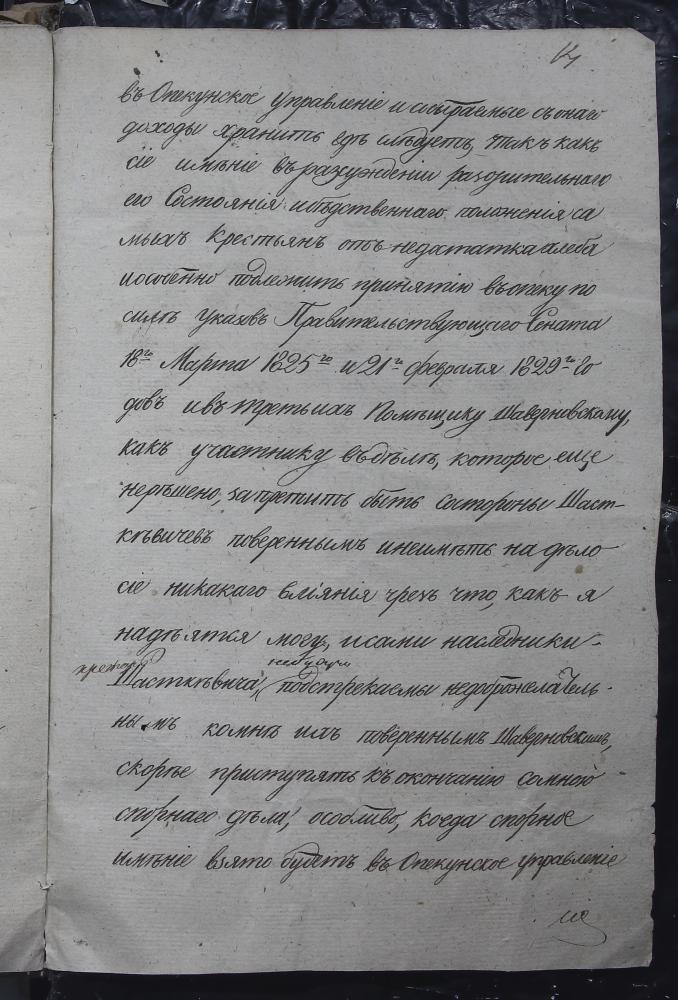 въ Опекунское управленіе и собираемые съ онаго
доходы хранить гдѣ слѣдуетъ, такъ какъ
сіе имѣніе въ разсужденіи разорительнаго
его Состоянія и бѣдственнаго положенія са
мыхъ Крестьянъ отъ недататка хлеба
и особенно подлежитъ принятію въ опеку по
силѣ указовъ Правительствующаго Сената
18го Марта 1825го и 21го февраля 1829го Го
довъ и въ третьихъ Помѣщику Шаверновскому,
какъ участнику въ дѣлѣ, которое еще
нерѣшено, запретить быть состороны Шаст-
кѣвичевъ повереннымъ и неимѣть на дѣло
сіе никакаго вліянія чрезъ что, какъ я
надѣятся могу, и сами наследники-
Шасткѣвича, небудучи подстрекаемы недоброжелатель-
нымъ комнѣ ихъ повереннымъ Шаверновскимъ,
скорѣе приступятъ къ окончанію сомною
спорнаго дѣла, особливо, когда спорное
имѣніе взято будетъ въ Опекунское управленіе